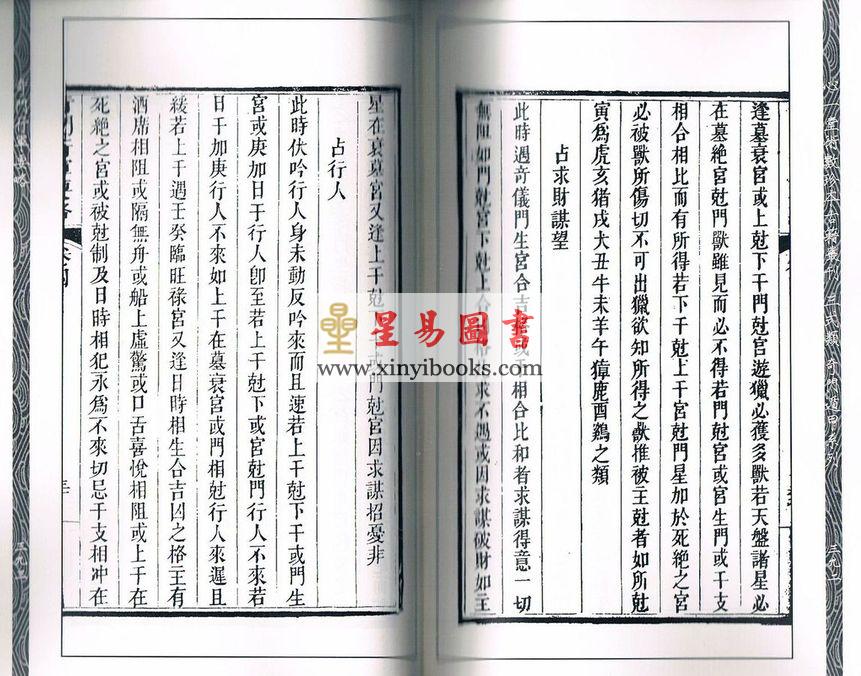 逢墓衰宮或上尅下干門尅宮遊獵必獲多獸若天盤諸星必
在墓絶宮尅門獸雖見而必不得若門尅宮或宮生門或干支
相合相比而有所得若下干尅上干宮尅門星加於死絶之宮
必被獸所傷切不可出獵欲知所得之獸推被主尅者如所尅
寅爲虎亥猪戌犬丑牛未羊午獐鹿酉鷄之類
占求財謀望
此時遇奇儀門生宮合吉或干相合比和者求謀得意一切
無阻如門尅宮下尅上合求不遇或因求謀破財如主
星在衰墓宮又逢上干尅或門尅宮因求謀招憂非
占行人
此時伏吟行人身未動反吟來而且速若上干尅下干或門生
宮或庚加日干行人卽至若上干尅下或宮尅門行人不來若
日干加庚行人不來如上干在墓衰宮或門相尅行人來遲且
緩若上干遇壬癸臨旺祿宮又逢日時相生合吉凶之格主有
酒席相阻或隔無舟或船上虛驚或口舌喜悅相阻或上干在
死絶之宮或被尅制及日時相犯永爲不來切忌干支相冲在
星易圖書
www.xinyibooks.com